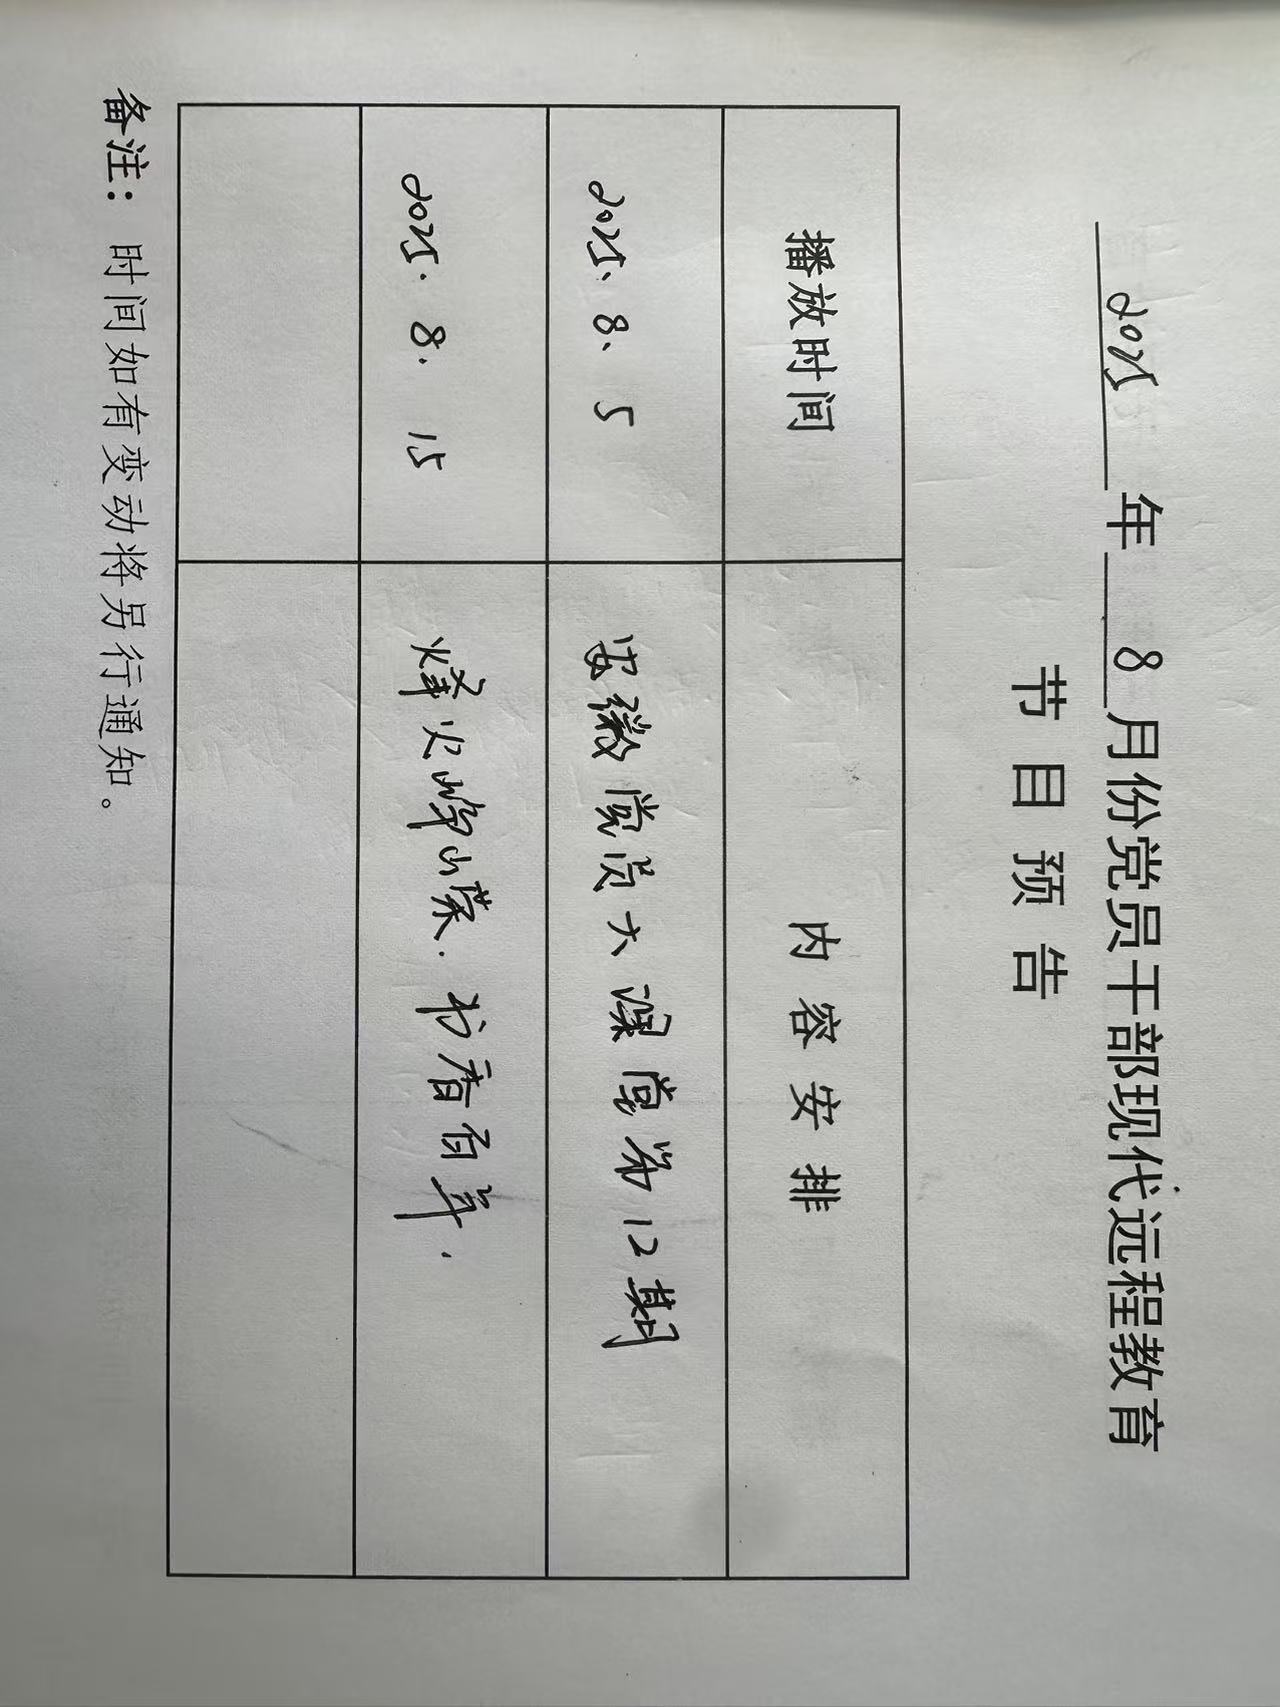 2025年8月份党员干部现代远程教育
节目预告
播放时间 内容安排
2025、8、5 安徽党员大课堂第12期
2025.8.15 烽火峥嵘.书香百年.
备注：时间如有变动将另行通知。